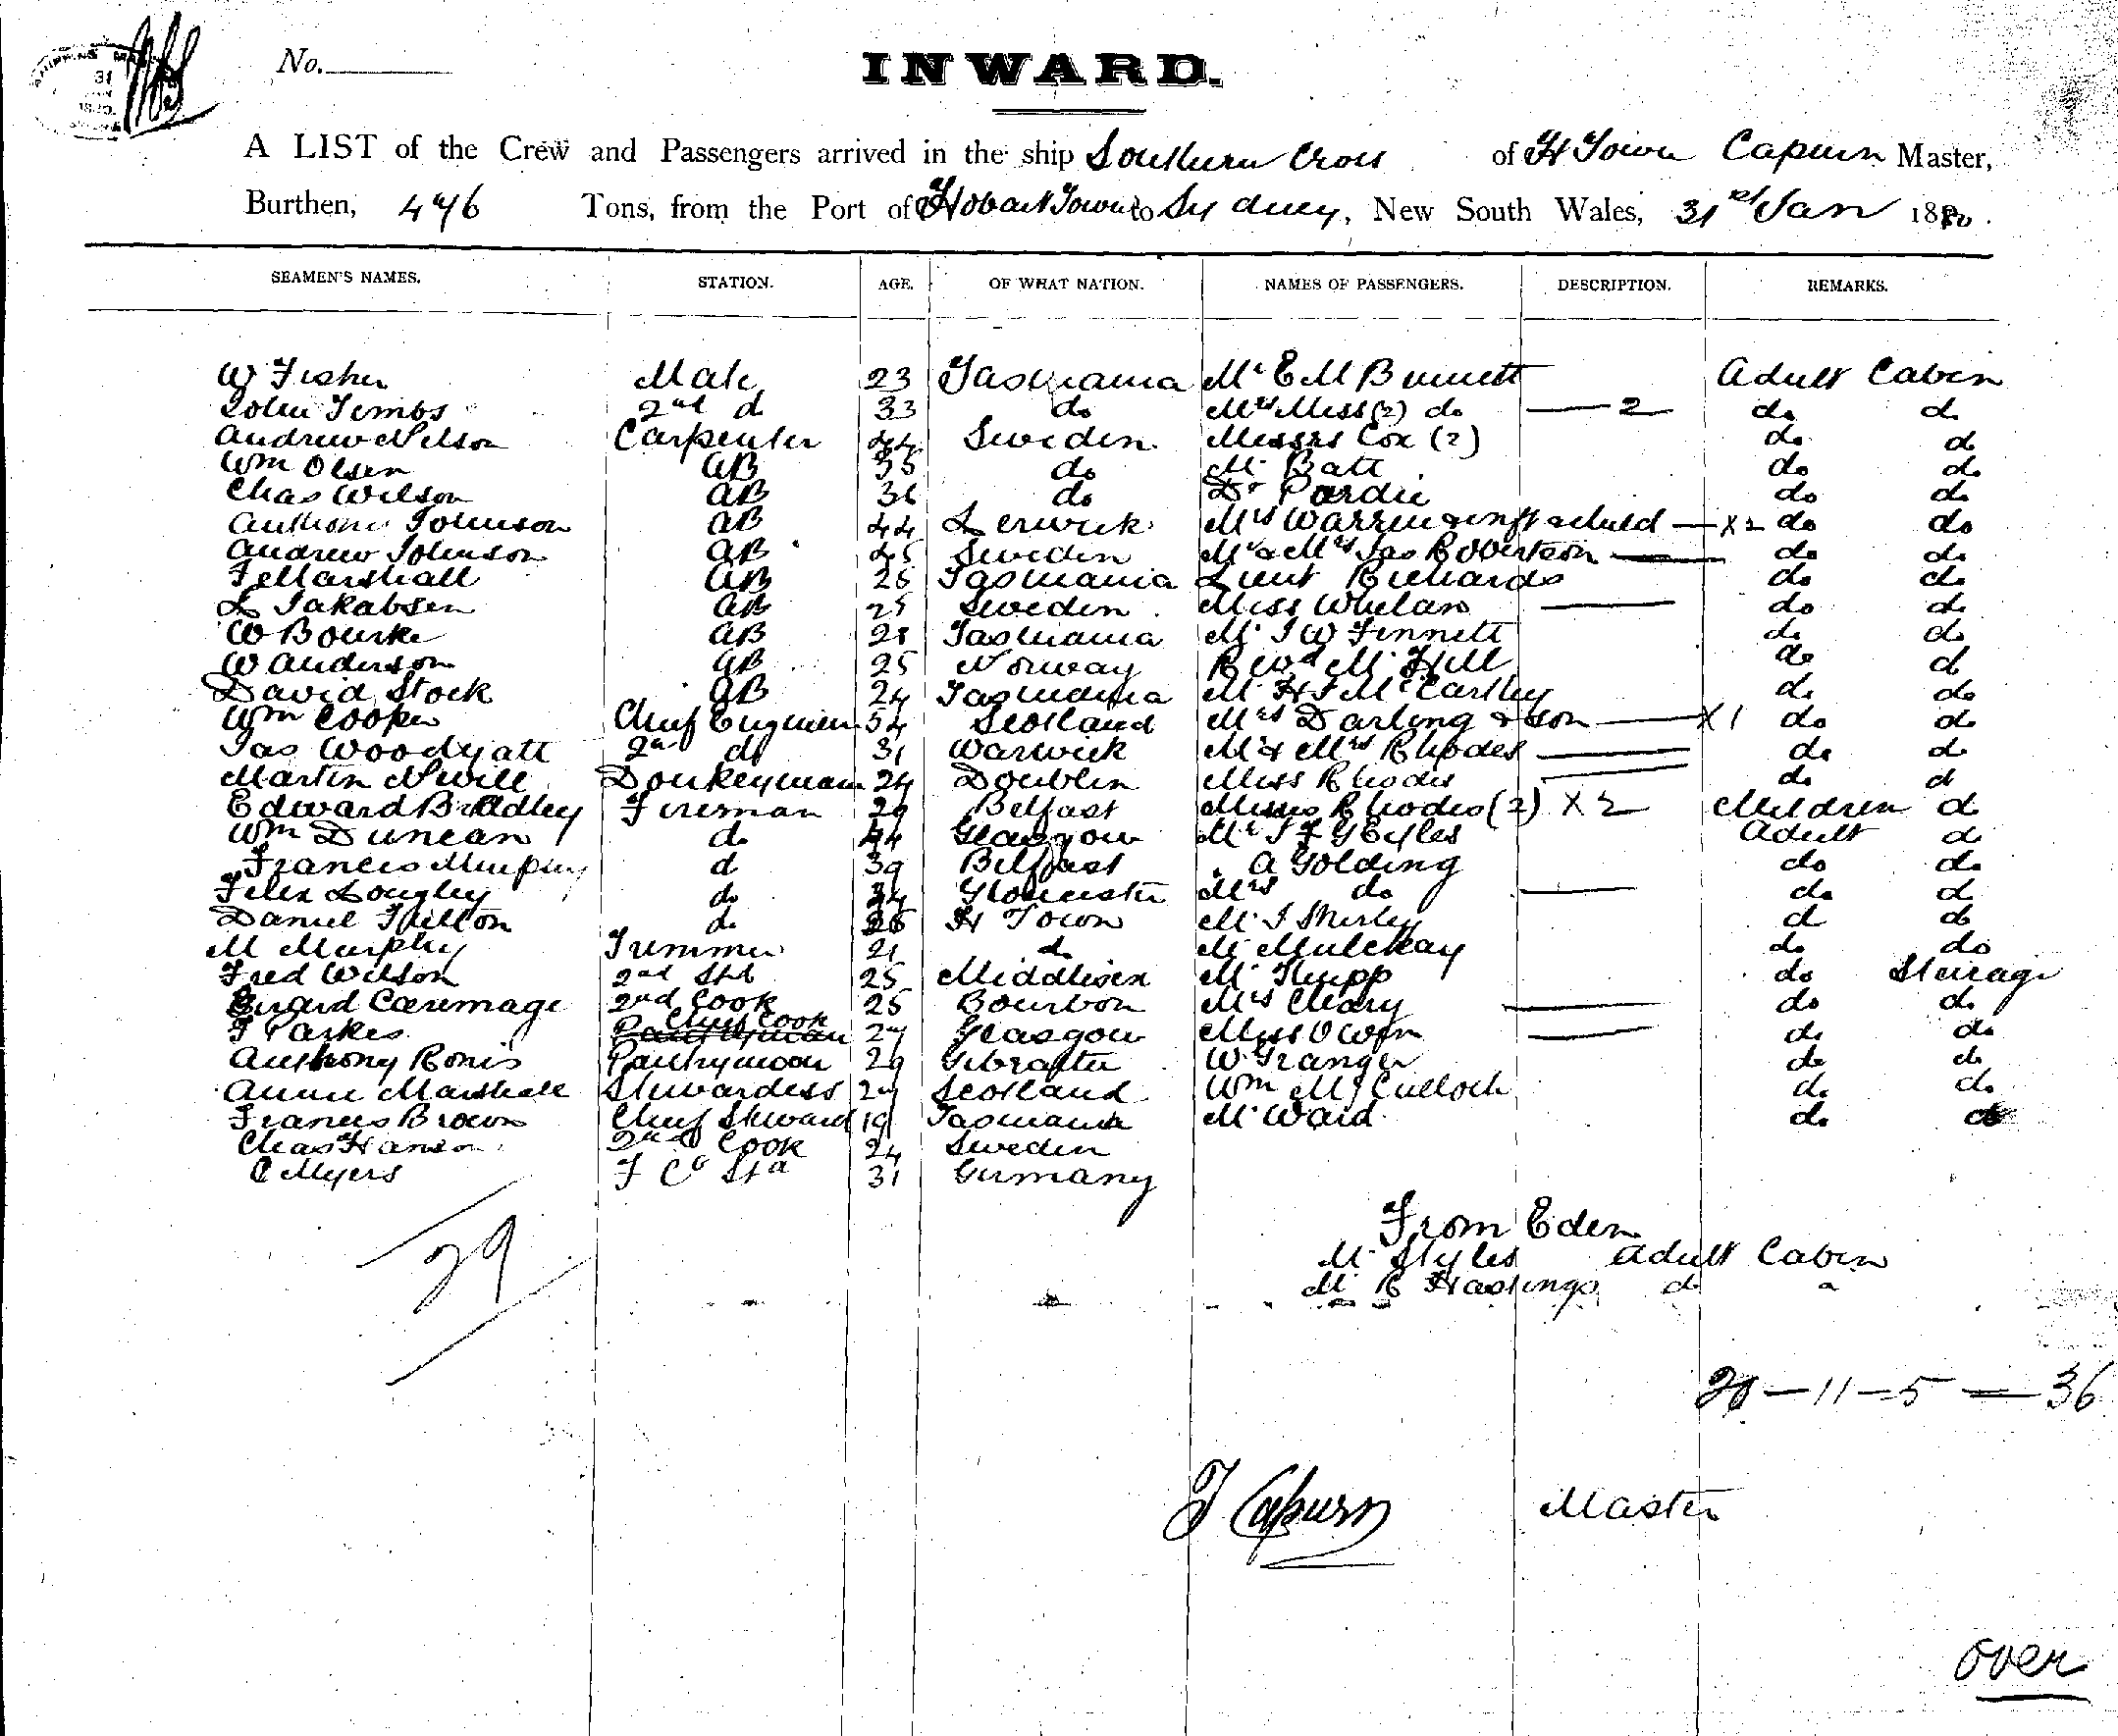 No.
INWARD.
A LIST of the Crew and Passengers arrived in the ship Southern Cross of H Town Capurn Master,
Burthen, 446 Tons, from the Port of Hobart Town to Sydney, New South Wales, 31st Jan 1880.
SEAMEN'S NAMES. STATION. AGE. OF WHAT NATION. NAMES OF PASSENGERS. DESCRIPTION. REMARKS.
W Fisher Mate 23 Tasmania Mr E M Burnett Adult Cabin
John Timbs 2nd d 33 do Mrs Miss (2) do — 2 do d
Andrew Nilson Carpenter 44 Sweden Messrs Cox (2) do d
Wm Olsen AB 35 do Mr Batt do do
Chas Wilson AB 36 do Dr Pardie do do
Johnson AB 44 Lerwick Mrs Warren & child — X2 do do
Andrew Johnson AB 45 Sweden Mr & Mrs Jas Robertson — do do
J Marshall AB 25 Tasmania Lieut Richards do do
L Jakabsen AB 25 Sweden Miss Whelan — do d
W Bourke AB 28 Tasmania Mr J W Finnett do do
W Anderson AB 25 Norway Revd Mr Hill do d
David Stock AB 24 Tasmania Mr H J McCarthy do do
Wm Cooper Chief Engineer 54 Scotland Mrs Darling & son — X1 do do
Jas Woodyatt 2nd d 31 Warwick Mr & Mrs Rhodes — do d
Martin Nwill Donkeyman 24 Doublin Miss Rhodes — do d
Edward Bradley Fireman 29 Belfast Misses Rhodes (2) X 2 Children d
Wm Duncan do 44 Glasgow Mr Adult d
Francis Murphy d 39 Belfast " A Golding do do
Felix Longley do 34 Gloucester Mrs do — do d
Daniel do 26 H Town Mr J Shirley d do
M Murphy Trimmer 21 do Mr Mulckay do do
Fred Wilson 2nd Std 25 Middlesex Mr Thupp do Steerage
Caremage 2nd Cook 25 Bourbon Mrs Cleary — do do
J Parkes Chief Cook 27 Glasgow Miss Owen — do do
Anthony Ronis Pantryman 29 Gibralter W Granger do do
Annie Marshall Stewardess 27 Scotland Wm McCulloch do do
Francis Brown Chief Steward 19 Tasmania Mr Ward do do
Chas Hanson 2nd Cook 24 Sweden
C Myers F C Sta 31 Germany
29
From Eden
Mr Styles Adult Cabin
Mr R Hastings d
20 — 11 — 5 — 36
J Capurn Master
over